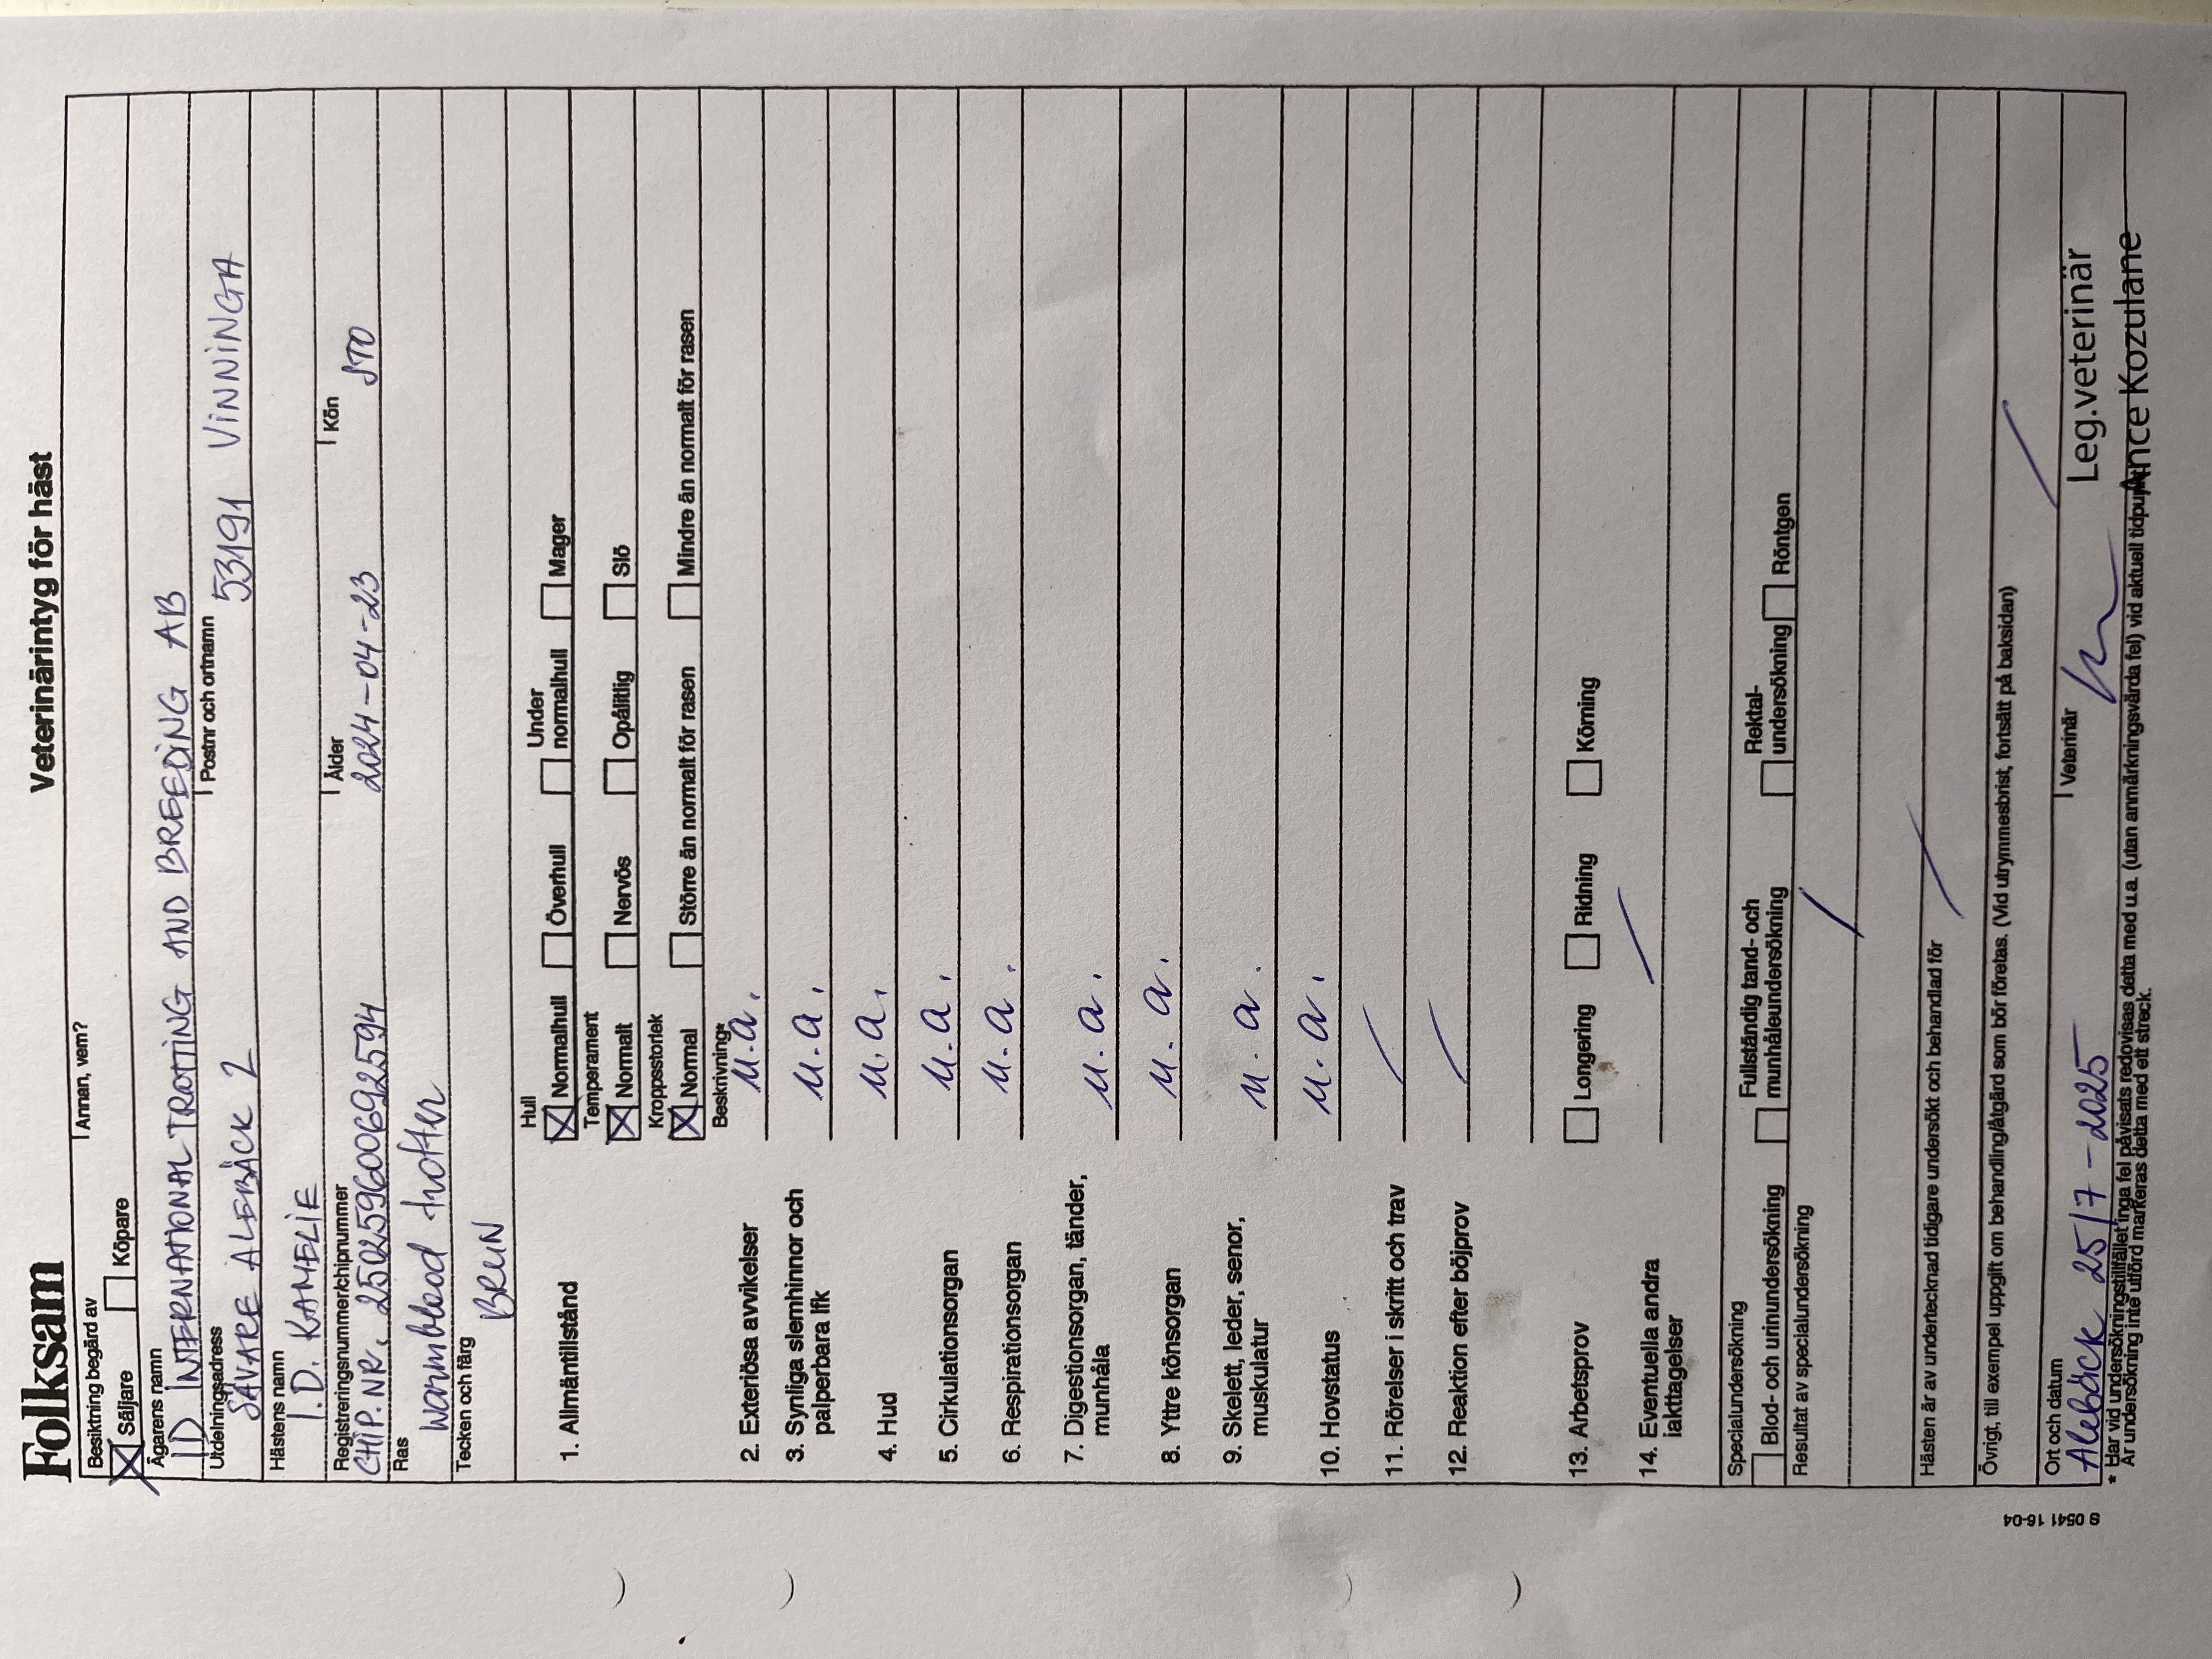 Folksam
Veterinärintyg för häst
Besiktning begärd av
Annan, vem?
Säljare Köpare
Ägarens namn
ID INTERNATIONAL TROTTING AND BREEDING AB
Utdelningsadress Postnr och ortnamn
SÄVARE ALEBÄCK 2 53191 VINNINGA
Hästens namn
I.D. KAMELIE
Registreringsnummer/chipnummer Ålder Kön
CHIP.NR. 250259600692594 2024-04-23 STO
Ras
Warmblood trotter
Tecken och färg
BRUN
1. Allmäntillstånd
Hull
Normalhull Överhull Under normalhull Mager
Temperament
Normalt Nervös Opålitlig Slö
Kroppsstorlek
Normal Större än normalt för rasen Mindre än normalt för rasen
Beskrivning*
2. Exteriösa avvikelser u.a.
3. Synliga slemhinnor och
palperbara lfk u.a.
4. Hud u.a.
5. Cirkulationsorgan u.a.
6. Respirationsorgan u.a.
7. Digestionsorgan, tänder,
munhåla u.a.
8. Yttre könsorgan u.a.
9. Skelett, leder, senor,
muskulatur u.a.
10. Hovstatus u.a.
11. Rörelser i skritt och trav
12. Reaktion efter böjprov
13. Arbetsprov Longering Ridning Körning
14. Eventuella andra
iakttagelser
Specialundersökning
Blod- och urinundersökning Fullständig tand- och munhåleundersökning Rektal-undersökning Röntgen
Resultat av specialundersökning
Hästen är av undertecknad tidigare undersökt och behandlad för
Övrigt, till exempel uppgift om behandling/åtgärd som bör företas. (Vid utrymmesbrist, fortsätt på baksidan)
Ort och datum Veterinär
Alebäck 25/7-2025 Leg.veterinär
Ance Kozulane
* Har vid undersökningstillfället inga fel påvisats redovisas detta med u.a. (utan anmärkningsvärda fel) vid aktuell tidpunkt.
Är undersökning inte utförd markeras detta med ett streck.
S 0541 16-04